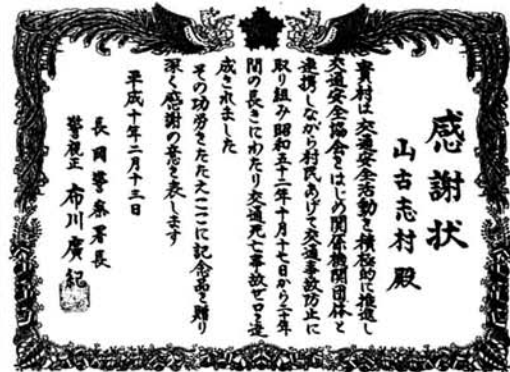 感謝状
山古志村殿
貴村は交通安全活動を積極的に推進し
交通安全協会をはじめ関係機関団体と
連携しながら村民あげて交通事故防止に
取り組み昭和五十二年十月十七日から二十年
間の長きにわたり交通死亡事故ゼロを達
成されました
その功労をたたえここに記念品を贈り
深く感謝の意を表します
平成十年二月十三日
長岡警察署長
警視正 布川廣紀